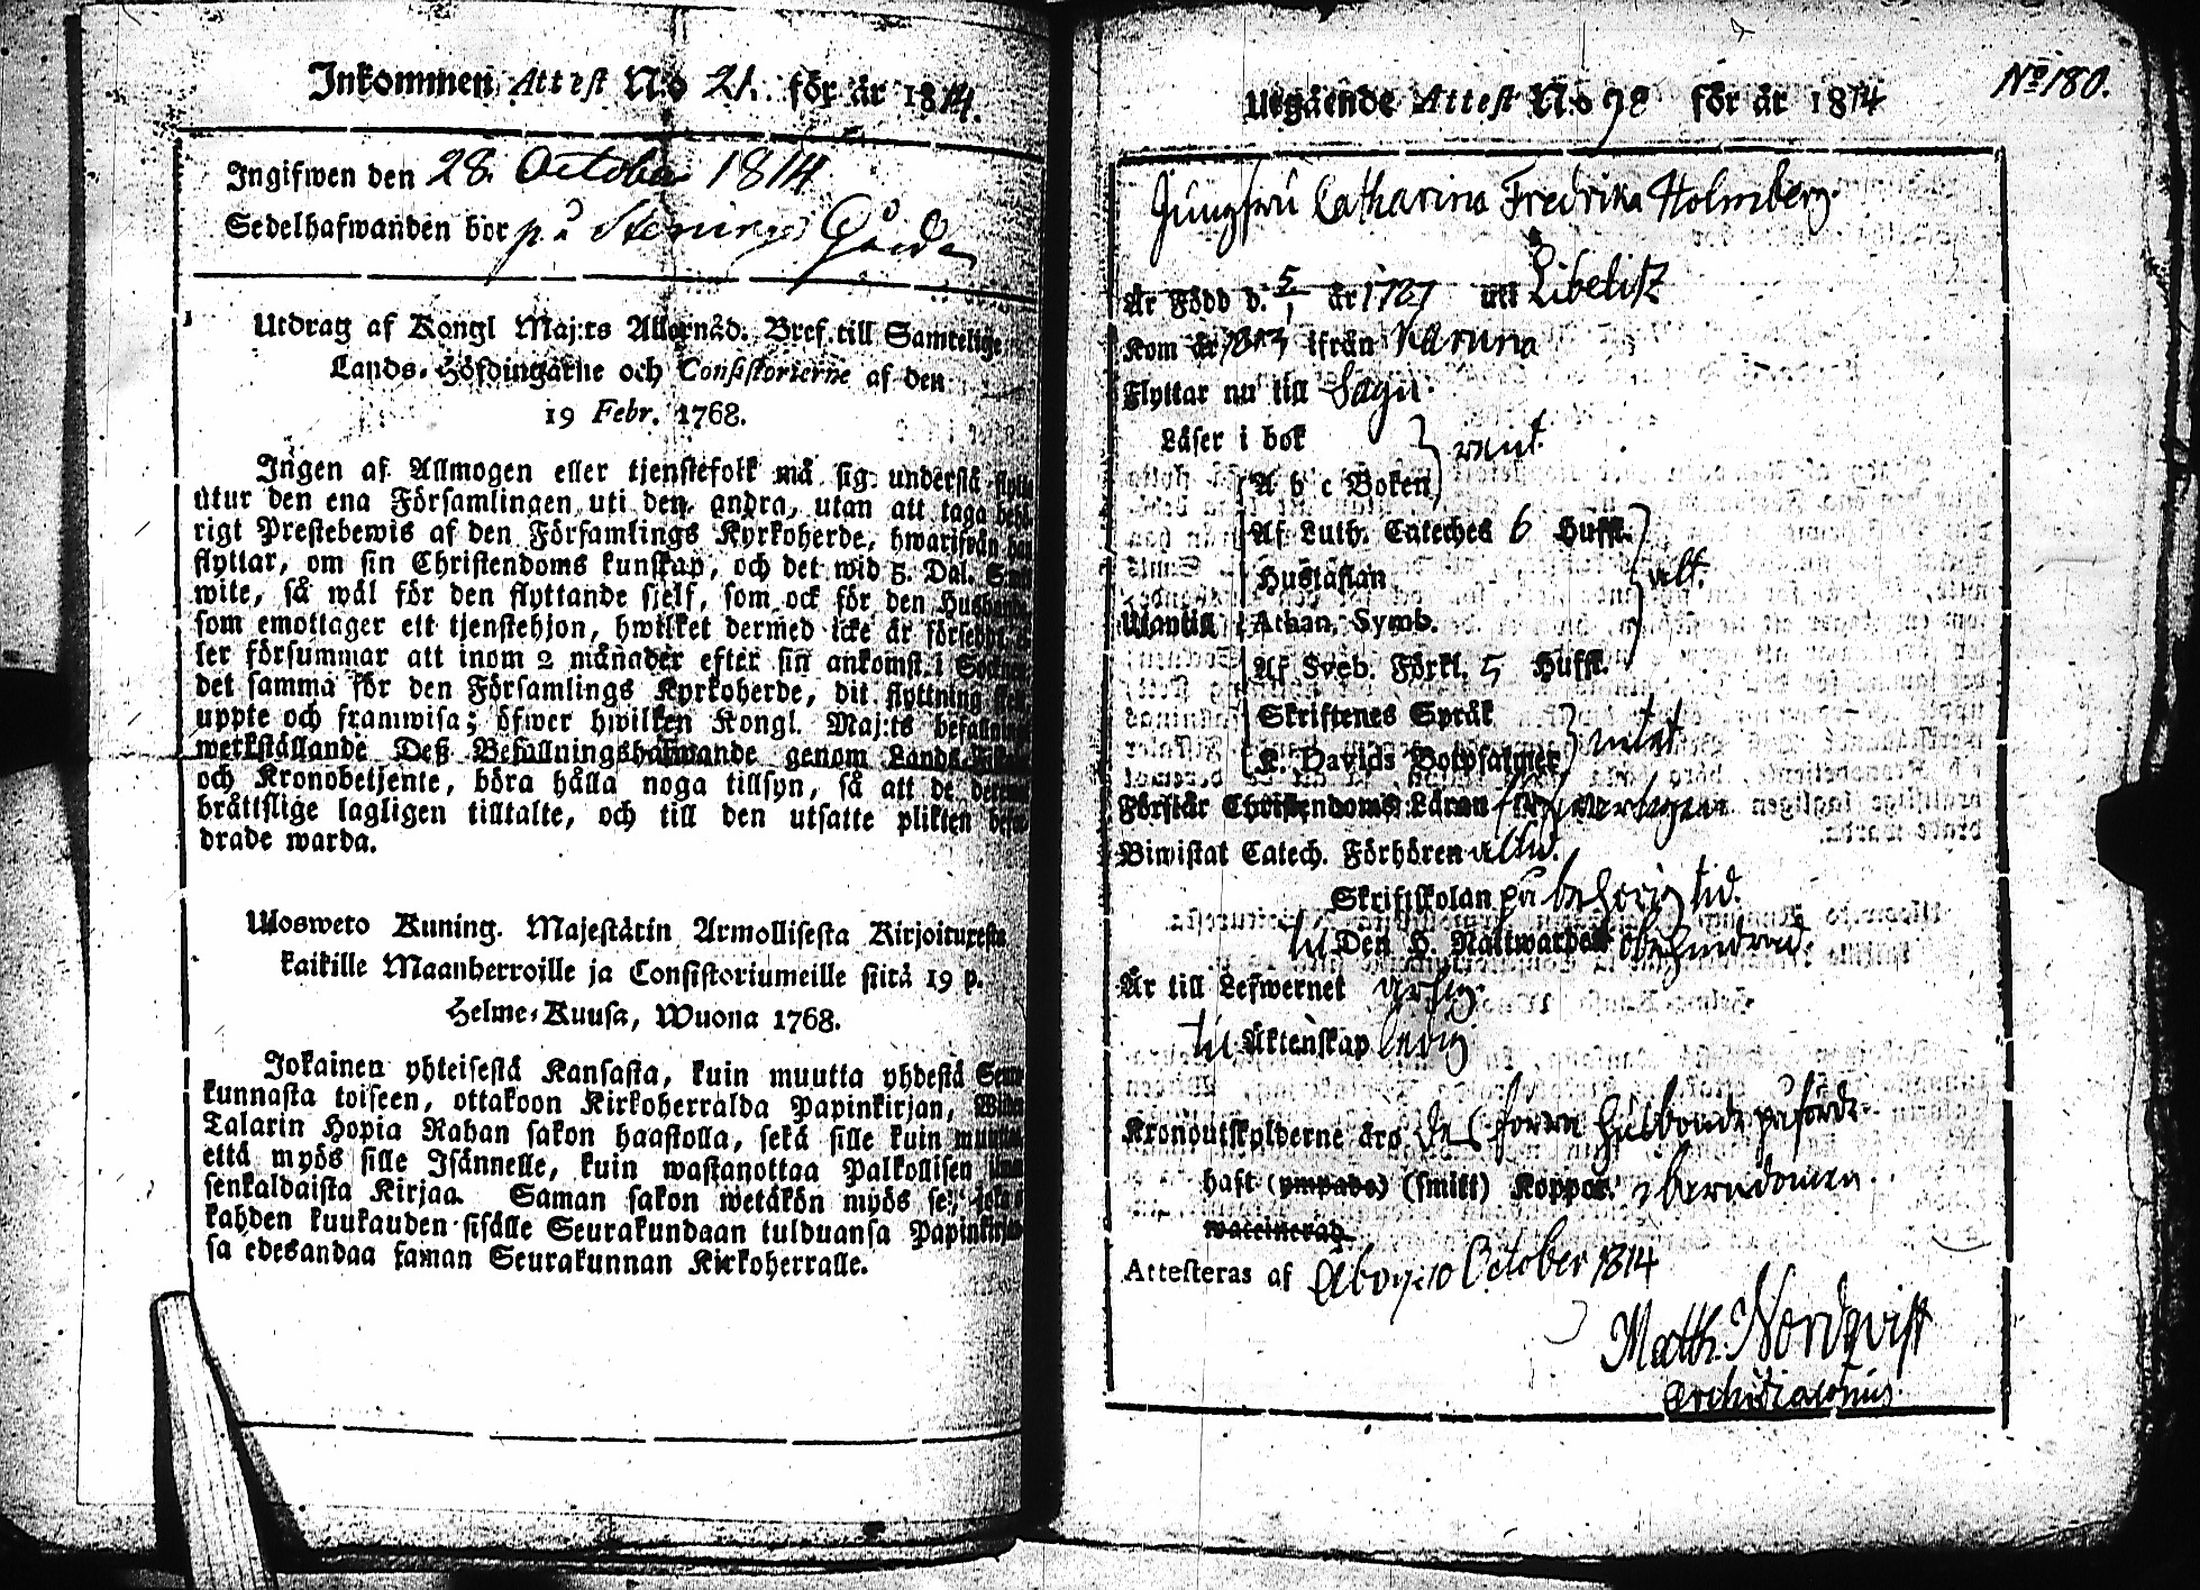 Inkommen Attest N:o 21. för år 1814.
Ingifwen den 28. October 1814
Sedelhafwanden bor på Gård
Utdrag af Kongl Maj:ts Allernåd. Bref till Samtelige
Lands-Höfdingarne och Consistorierne af den
19 Febr. 1768.
Ingen af Allmogen eller tjenstefolk må sig understå flytta
utur den ena Församlingen uti den andra, utan att taga behö-
rigt Prestebewis af den Församlings Kyrkoherde, hwarifrån han
flyttar, om sin Christendoms kunskap, och det wid 5. Dal. Smts
wite, så wäl för den flyttande sjelf, som ock för den Husbonde
som emottager ett tjenstehjon, hwilket dermed icke är försedt, el-
ler försummar att inom 2 månader efter sin ankomst i Socknen
det samma för den Församlings Kyrkoherde, dit flyttning sker,
uppte och framwisa; öfwer hwilken Kongl. Maj:ts befallning
werkställande Deß Befallningshafwande genom Lands-
och Kronobetjente, böra hålla noga tillsyn, så att de
bråttslige lagligen tilltalte, och till den utsatte plikten befor-
drade warda.
Ulosweto Kuning. Majestätin Armollisesta Kirjoituxesta
kaikille Maanherroille ja Consistoriumeille siitä 19 p.
Helme-Kuusa, Wuona 1768.
Jokainen yhteisestä Kansasta, kuin muutta yhdestä Seura-
kunnasta toiseen, ottakoon Kirkoherralda Papinkirjan, Wiiden
Talarin Hopia Rahan sakon haastolla, sekä sille kuin muutta,
että myös sille Isännelle, kuin wastanottaa Palkollisen ilman
senkaldaista Kirjaa. Saman sakon wetäkön myös se, joka ei
kahden kuukauden sisälle Seurakundaan tulduansa Papinkirjan-
sa edesandaa saman Seurakunnan Kirkoherralle.
No 180.
Utgående Attest N:o 98 för år 1814
Jungfru Catharina Fredrika Holmberg.
Är Född d. 5/1 år 1787 uti Libelitz
Kom år 1813 ifrån Karuna
Flyttar nu till Sagu.
Läser i bok
A b c Boken } rent
Af Luth. Cateches 6 Hufft.
Hustaflan } allt.
Utantill Athan. Symb.
Af Sveb. Förkl. 5 Hufft.
Skriftenes Språk
K. Davids Botpsalmer } intet
Förstår Christendoms Läran
Biwistat Catech. Förhören alltid.
Skriftskolan på behörig tid.
till Den H. Nattwarden obehindrad.
Är till Lefwernet ärlig.
till Äktenskap ledig
Kronoutskylderne äro des förra husbonde påförde
haft (ympade) (smitt) Koppor. i barndomen.
waccinerad
Attesteras af Åbo d. 10 October 1814
Matth. Nordqvist
Archidiaconus.